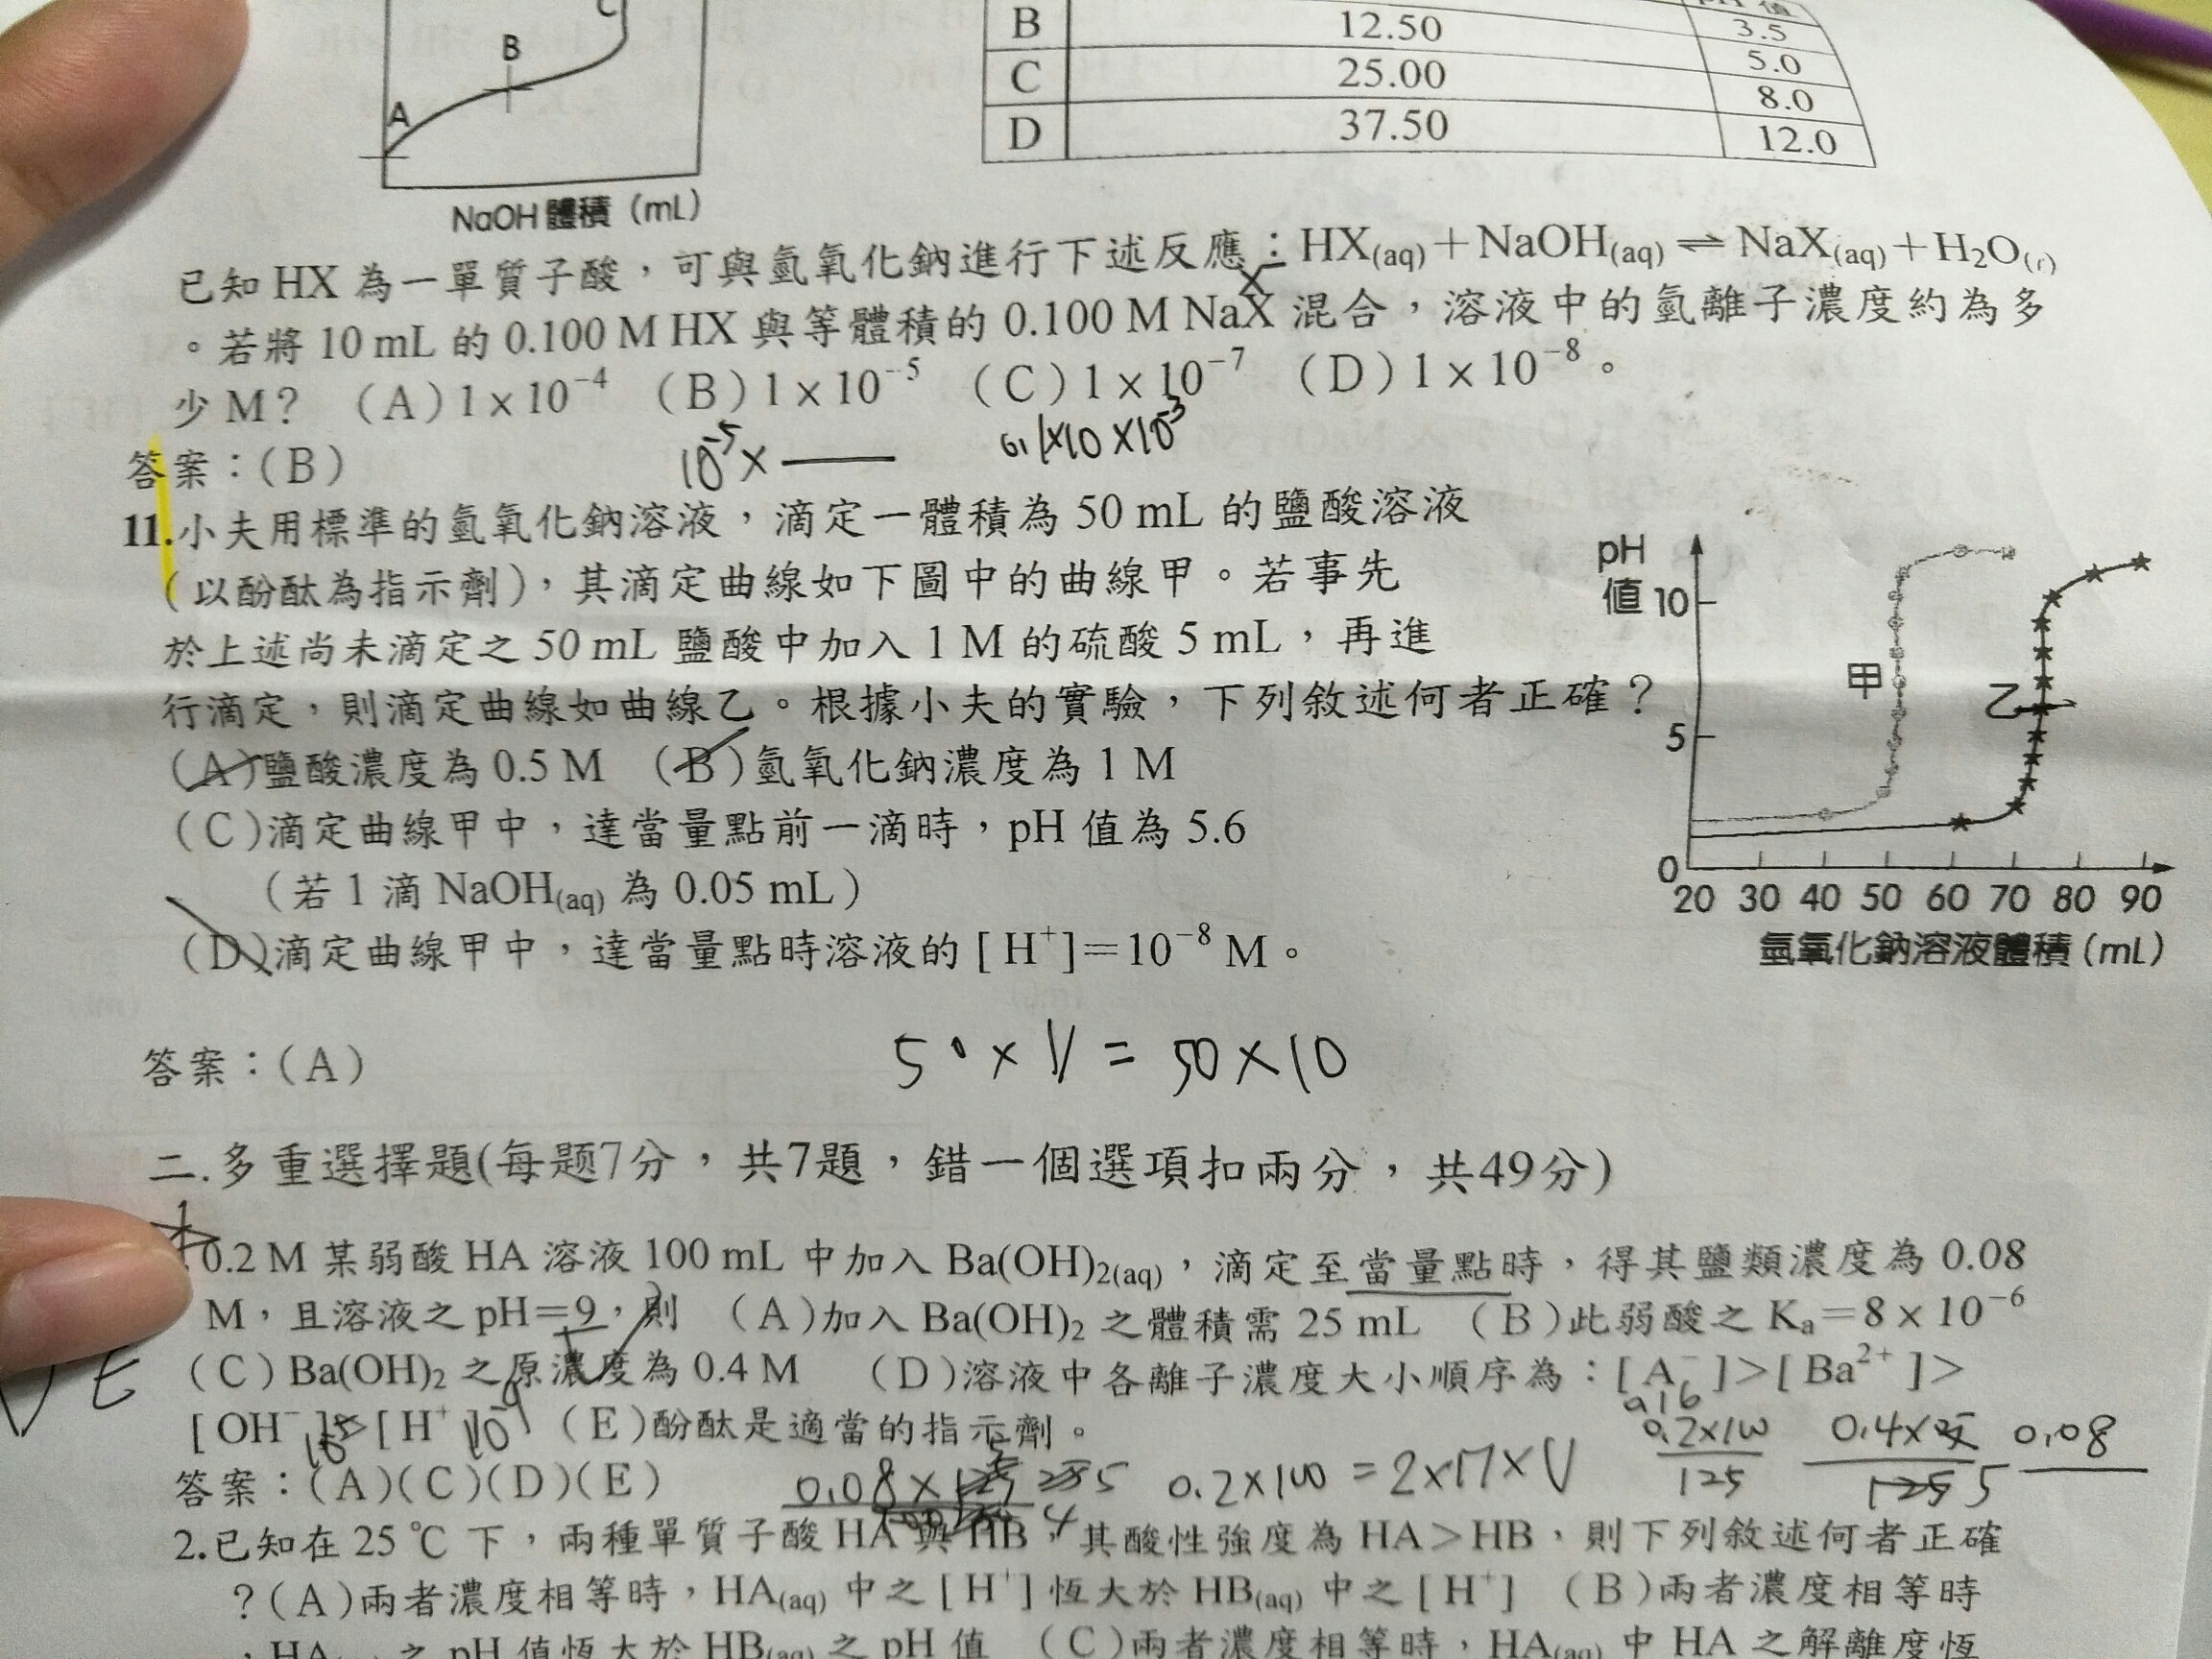 C
B
A
NaOH 體積(mL)
pH 值
B 12.50 3.5
C 25.00 5.0
8.0
D 37.50 12.0
已知 HX 為一單質子酸,可與氫氧化鈉進行下述反應:HX(aq)+NaOH(aq)⇌NaX(aq)+H₂O(ℓ)
。若將 10 mL 的 0.100 M HX 與等體積的 0.100 M NaX 混合,溶液中的氫離子濃度約為多
少 M? (A)1×10⁻⁴ (B)1×10⁻⁵ (C)1×10⁻⁷ (D)1×10⁻⁸。
10⁻⁵×
0.1×10×10⁻³
答案:(B)
11.小夫用標準的氫氧化鈉溶液,滴定一體積為 50 mL 的鹽酸溶液
(以酚酞為指示劑),其滴定曲線如下圖中的曲線甲。若事先
於上述尚未滴定之 50 mL 鹽酸中加入 1 M 的硫酸 5 mL,再進
行滴定,則滴定曲線如曲線乙。根據小夫的實驗,下列敘述何者正確?
(A)鹽酸濃度為 0.5 M (B)氫氧化鈉濃度為 1 M
(C)滴定曲線甲中,達當量點前一滴時,pH 值為 5.6
(若 1 滴 NaOH(aq) 為 0.05 mL)
(D)滴定曲線甲中,達當量點時溶液的[H⁺]=10⁻⁸ M。
pH
值 10
甲
乙
5
0
20 30 40 50 60 70 80 90
氫氧化鈉溶液體積(mL)
50×V=50×10
答案:(A)
二.多重選擇題(每题7分,共7題,錯一個選項扣兩分,共49分)
0.2 M 某弱酸 HA 溶液 100 mL 中加入 Ba(OH)₂(aq),滴定至當量點時,得其鹽類濃度為 0.08
M,且溶液之 pH=9,則 (A)加入 Ba(OH)₂ 之體積需 25 mL (B)此弱酸之 Kₐ=8×10⁻⁶
(C)Ba(OH)₂ 之原濃度為 0.4 M (D)溶液中各離子濃度大小順序為:[A⁻]>[Ba²⁺]>
[OH⁻]>[H⁺] (E)酚酞是適當的指示劑。
DE
10⁻⁵
10⁻⁹
0.16
答案:(A)(C)(D)(E)
0.2×100=2×M×V
0.2×100
125
0.08
2.已知在 25 ℃ 下,兩種單質子酸 HA 與 HB,其酸性強度為 HA>HB,則下列敘述何者正確
?(A)兩者濃度相等時,HA(aq) 中之[H⁺]恆大於 HB(aq) 中之[H⁺] (B)兩者濃度相等時
,HA(aq) 之 pH 值恆大於 HB(aq) 之 pH 值 (C)兩者濃度相等時,HA(aq) 中 HA 之解離度恆